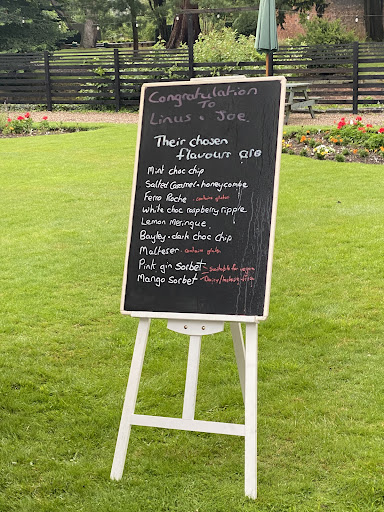 Congratulation
To
Linus & Joe.
Their chosen
flavours are
Mint choc chip
Salted Caramel • honeycombe
Ferro Roche • contains gluten
White choc raspberry ripple
Lemon Meringue
Bayley • dark choc chip
Malteser • contains gluten
Pink gin sorbet - Suitable for vegan
Mango Sorbet - Dairy/